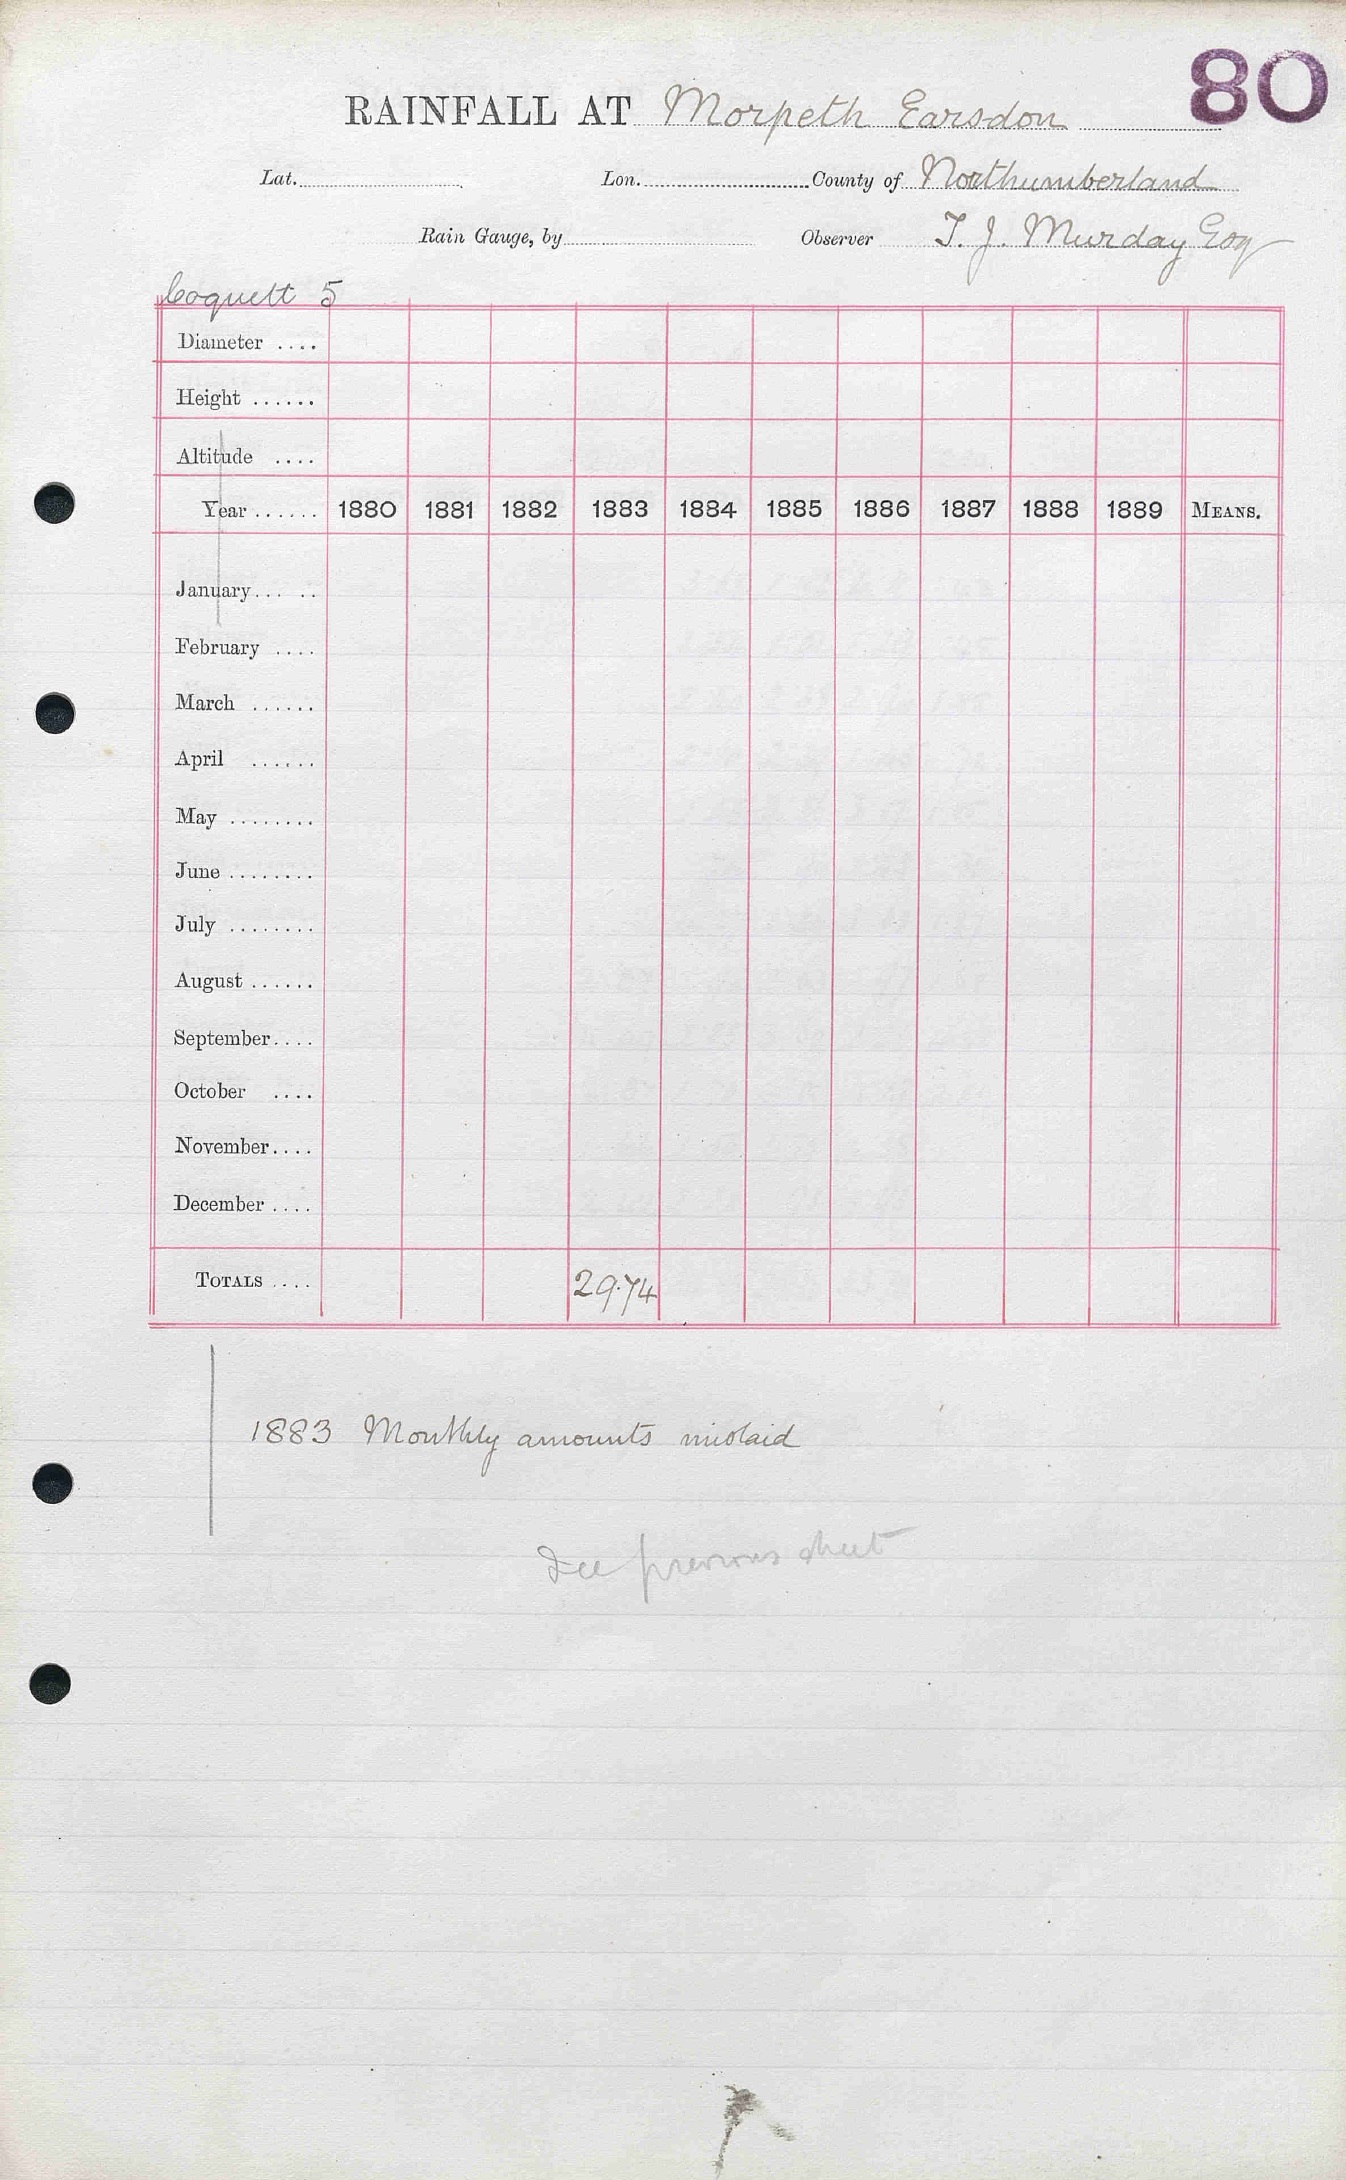 80
RAINFALL AT Morpeth Earsdon
Lat. Lon. County of Northumberland
Rain Gauge, by Observer T. J. Murday Esq
Coquett 5
Diameter ....
Height ......
Altitude ....
Year ...... 1880 1881 1882 1883 1884 1885 1886 1887 1888 1889 MEANS.
January... ..
February ....
March ......
April ......
May ........
June ........
July ........
August ......
September....
October ....
November....
December ....
TOTALS .... 29.74
1883 Monthly amounts mislaid
See previous sheet